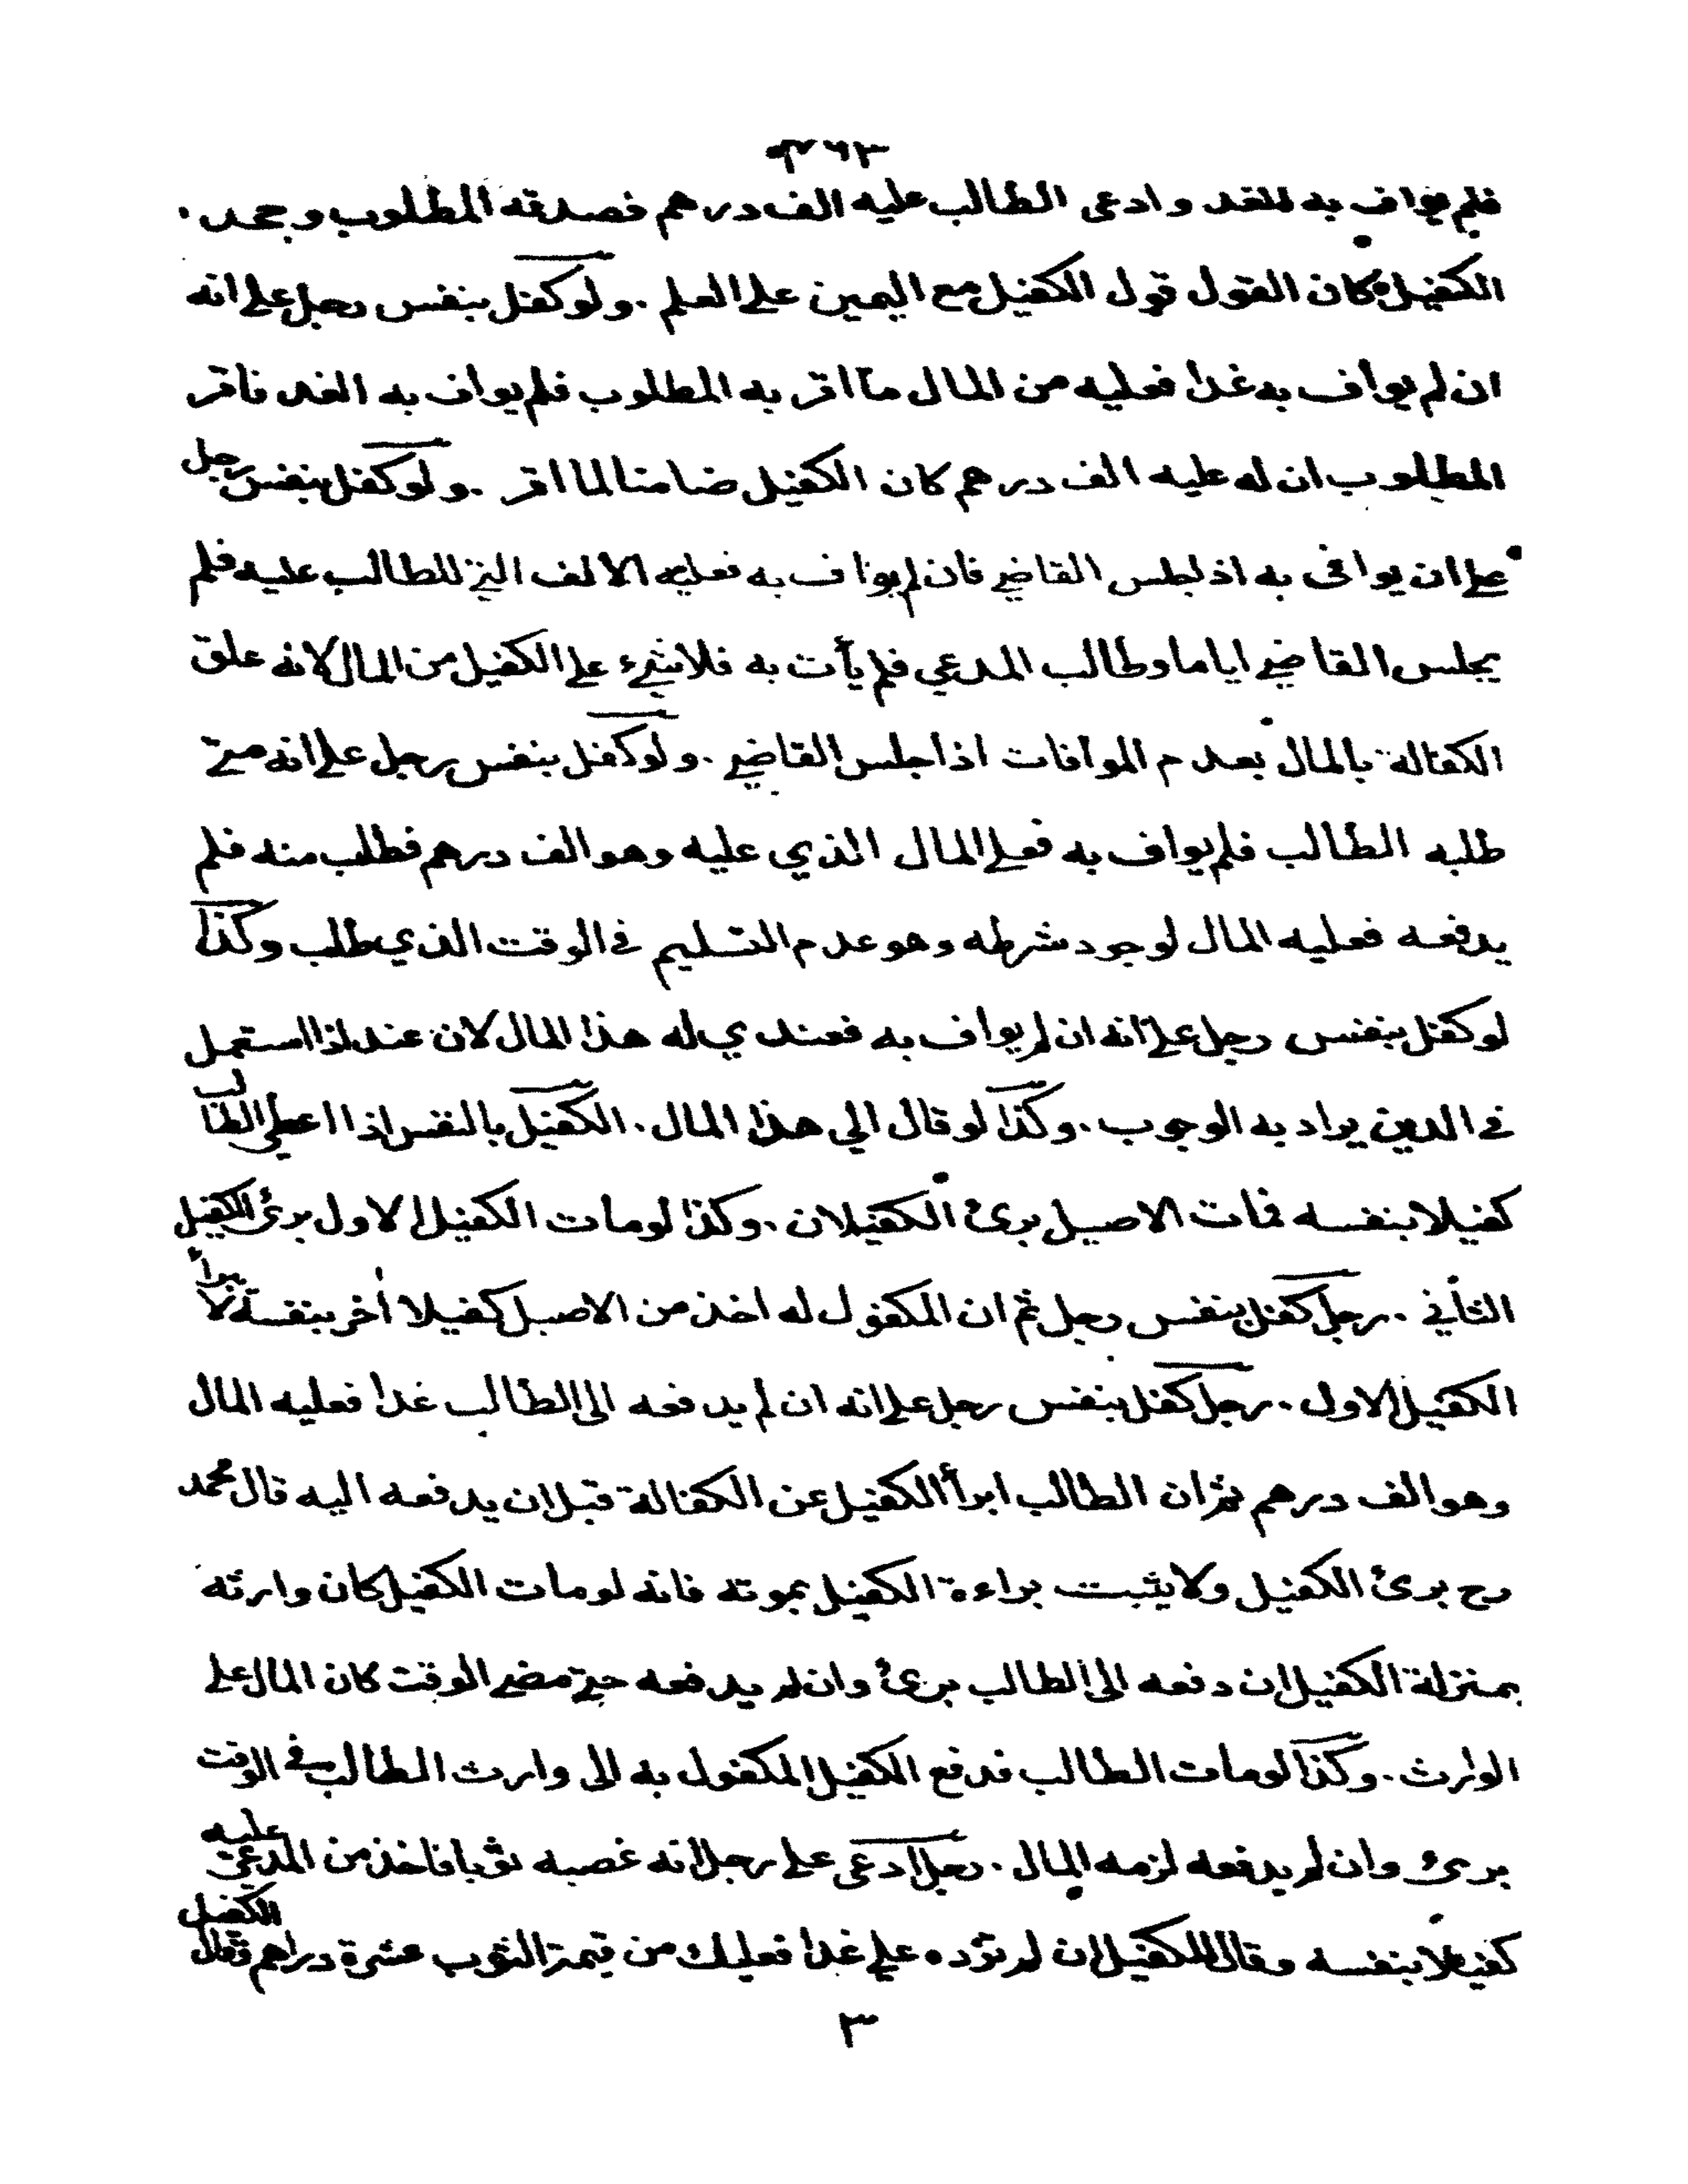 ٣٦٢
فلم يواف به للغد وادعى الطالب عليه الف درهم فصدقه المطلوب وجحد
الكفيل كان القول قول الكفيل مع اليمين على العلم . ولو كفل بنفس رجل على انه
ان لم يواف به غدا فعليه من المال ما اقر به المطلوب فلم يواف به الغد فاقر
المطلوب ان له عليه الف درهم كان الكفيل ضامنا لما اقر . ولو كفل بنفس رجل
على ان يوافى به اذ لجلس القاضي فان لم يواف به فعليه الالف التي للطالب عليه فلم
يجلس القاضي اياما وطالب المدعي فلم يأت به فلا شيء على الكفيل من المال لانه علق
الكفالة بالمال بعدم الموافات اذا جلس القاضي . ولو كفل بنفس رجل على انه متى
طلبه الطالب فلم يواف به فعلي المال الذي عليه وهو الف درهم فطلب منه فلم
يدفعه فعليه المال لوجود شرطه وهو عدم التسليم في الوقت الذي طلب وكذا
لو كفل بنفس رجل على انه ان لم يواف به فعندي له هذا المال لان عند اذا استعمل
في الدين يراد به الوجوب . وكذا لو قال الي هذا المال . الكفيل بالنفس اذا اعطى الطالب
كفيلا بنفسه فمات الاصيل برئ الكفيلان . وكذا لو مات الكفيل الاول برئ الكفيل
الثاني . رجل كفل بنفس رجل ثم ان المكفول له اخذ من الاصيل كفيلا اخر بنفسه لا يبرأ
الكفيل الاول . رجل كفل بنفس رجل على انه ان لم يدفعه الى الطالب غدا فعليه المال
وهو الف درهم ثم ان الطالب ابرأ الكفيل عن الكفالة قبل ان يدفعه اليه قال محمد
رح برئ الكفيل ولا يثبت براءة الكفيل بموته فانه لو مات الكفيل كان وارثه
بمنزلة الكفيل ان دفعه الى الطالب برئ وان لم يدفعه حتى مضى الوقت كان المال على
الوارث . وكذا لو مات الطالب فدفع الكفيل المكفول به الى وارث الطالب في الوقت
برئ وان لم يدفعه لزمه المال . رجل ادعى على رجل انه غصبه ثوبا فاخذ من المدعى عليه
كفيلا بنفسه وقال للكفيل ان لم تؤده علي غدا فعليك من قيمة الثوب عشرة دراهم فقال الكفيل
٣